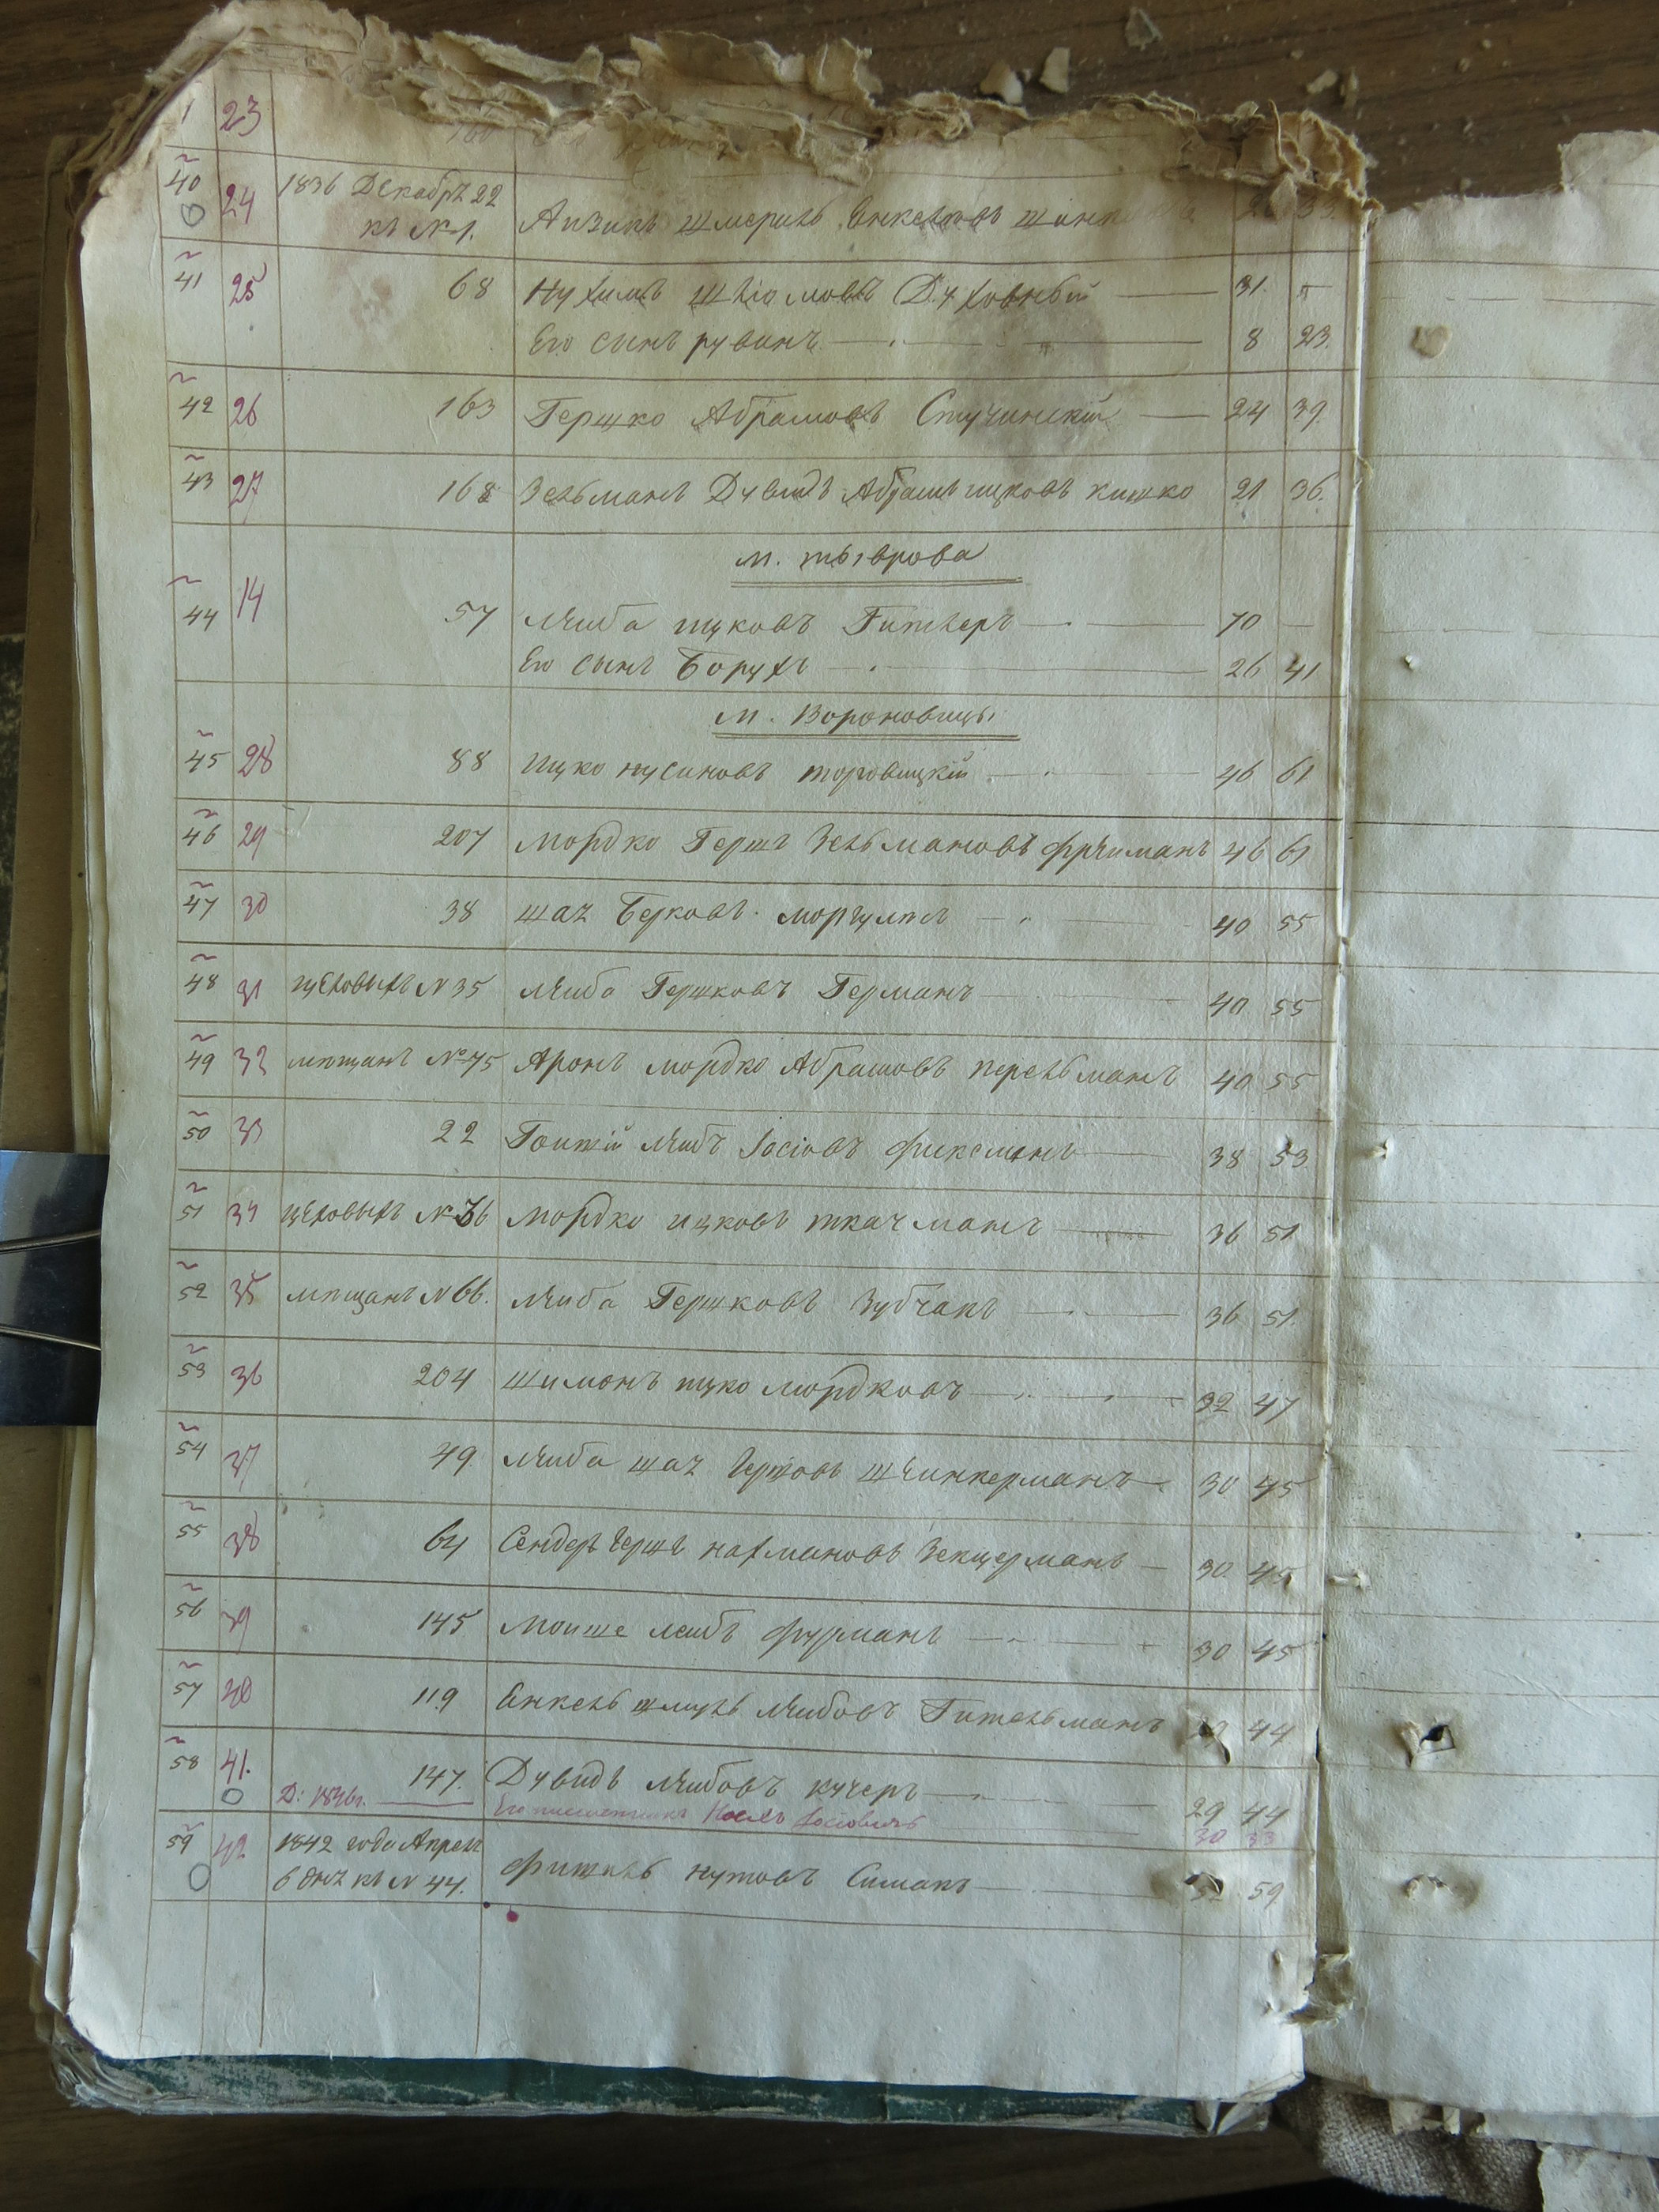 1 23 160
40 24 1836 Декабрь 22
къ №1. Аизикъ Шмериль Енкелевъ 33
41 25 68 Нухимъ Шліомовъ Духовный 31
Его сынъ рувинъ 8 23.
42 26 163 Гершко Абрамовъ Стучинскій 24 39.
43 27 168 Зельманъ Дувидъ Абрамъ ицковъ кишко 21 36.
м. тыврова
44 14 57 Лѣиба ицковъ 70
Его сынъ Борухъ 26 41
м. Вороновицы
45 28 88 Ицко нусиновъ торговицкій 46 61
46 29 207 мордко Гершъ Зельмановъ фрѣиманъ 46 61
47 30 38 шаъ Берковъ моргулисъ 40 55
48 31 цеховыхъ №35 Лѣиба Гершковъ Германъ 40 55
49 32 мѣщанъ №75 Аронъ мордко Абрамовъ перельманъ 40 55
50 33 22 Лѣибъ Іосіовъ фиксманъ 38 53
51 34 цеховыхъ №36 мордко ицковъ ткачманъ 36 51
52 35 мѣщанъ №66. Лѣиба Гершковъ Зубчакъ 36 51.
53 36 204 шимонъ ицко мордковъ 32 47
54 37 49 Лѣиба шаъ Гершовъ шѣинкерманъ 30 45
55 38 64 Сендеръ Гершъ нахмановъ Зекцерманъ 30 45
56 39 145 Моише леибъ фурманъ 30 45
57 40 119 Енкель шмуль Лѣибовъ Гительманъ 44
58 41. 147. Дувидъ Лѣибовъ кучеръ 29 44
Д: 1846г. Его племянникъ Іосіовичъ 30 33
59 42 1842 года Апреля
6 дня къ № 44. фишель нутовъ Симакъ 59